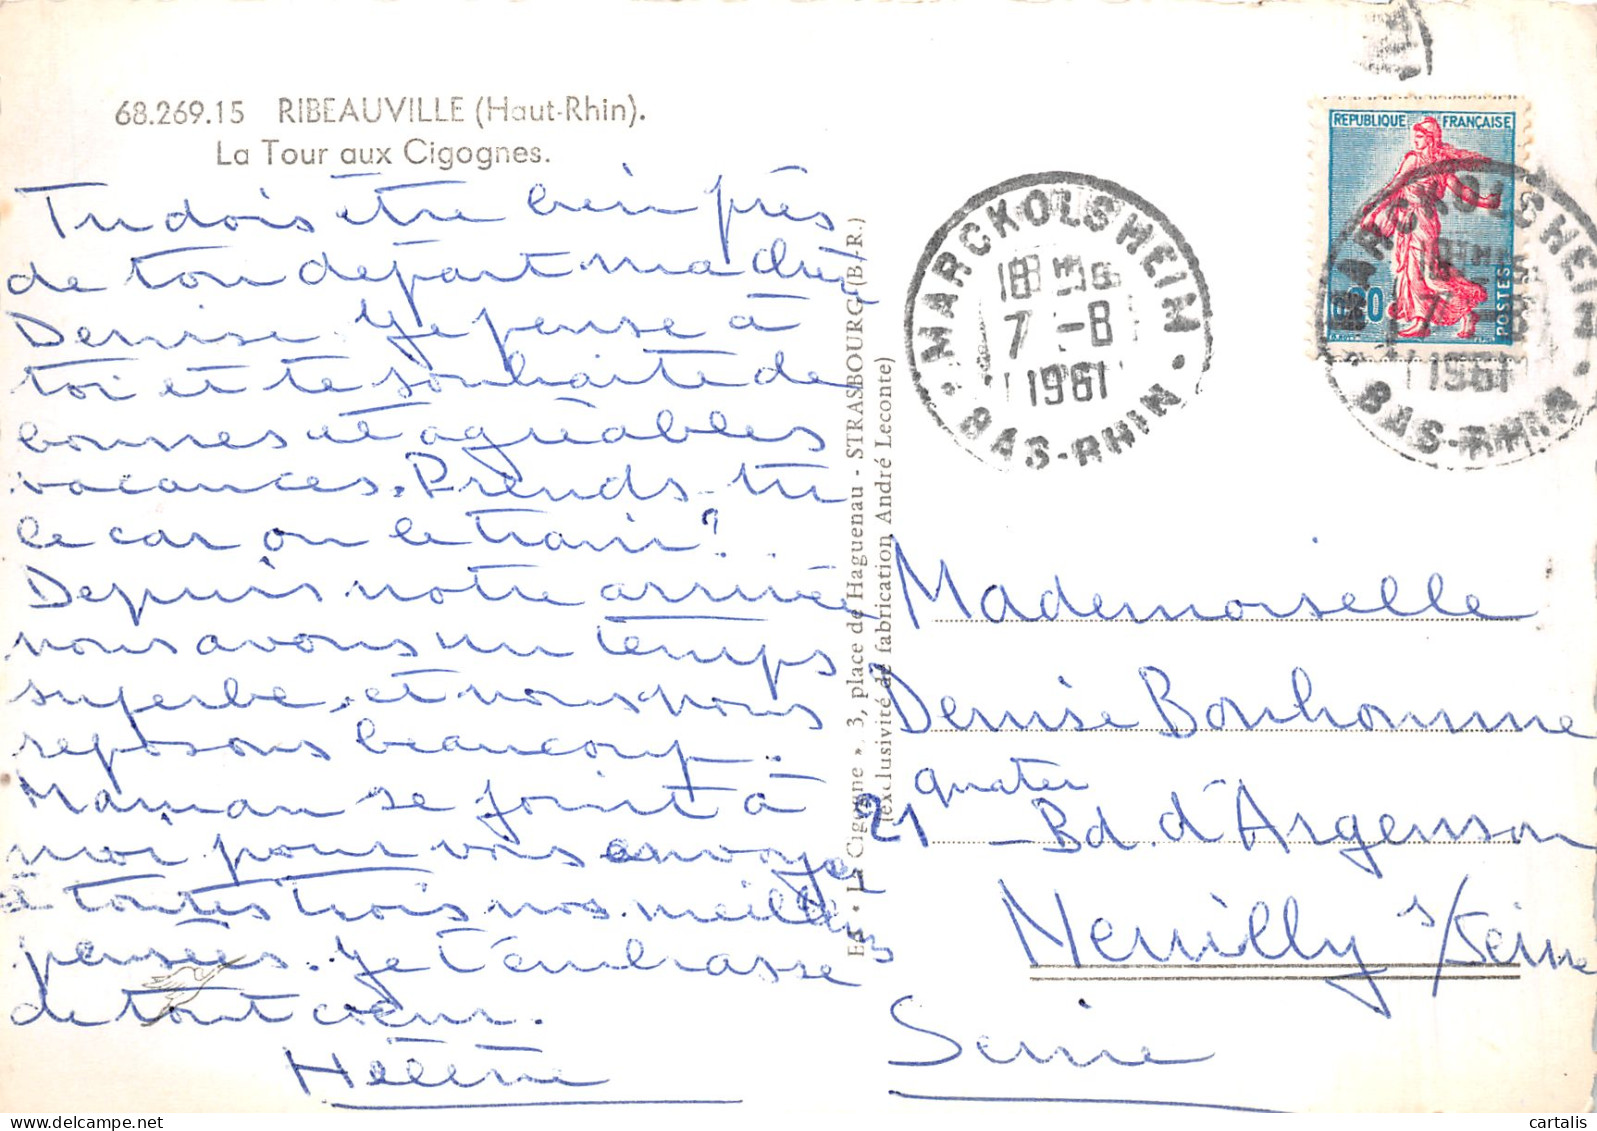 68.269.15 RIBEAUVILLE (Haut-Rhin).
La Tour aux Cigognes.
Tu dois être bien près
de ton départ ma chère
Denise. Je pense à
toi et te souhaite de
bonnes et agréables
vacances. Prends-tu
le car ou le train?
Depuis notre arrivée
nous avons un temps
superbe, et nous nous
reposons beaucoup.
Maman se joint à
moi pour vous envoyer
à toutes trois nos meilleures
pensées. Je t'embrasse
de tout cœur.
Hélène
"La Cigogne", 3, place de Haguenau - STRASBOURG (B.-R.)
(exclusivité de fabrication André Leconte)
MARCKOLSHEIM
18H
7 -8
1961
BAS-RHIN
REPUBLIQUE FRANÇAISE
0,20
POSTES
MARCKOLSHEIM
18H
7 -8
1961
BAS-RHIN
Mademoiselle
Denise Bonhomme
quater
21 Bd. d'Argenson
Neuilly s/Seine
Seine
cartalis